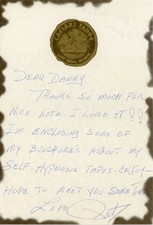 DEAR DANNY
THANKS SO MUCH FOR
NICE NOTE I LOVED IT!!
I'M ENCLOSING SOME OF
MY BROCHURE'S ABOUT MY
SELF-HYPNOSIS TAPES-ENJOY-
HOPE TO MEET YOU SOME DAY